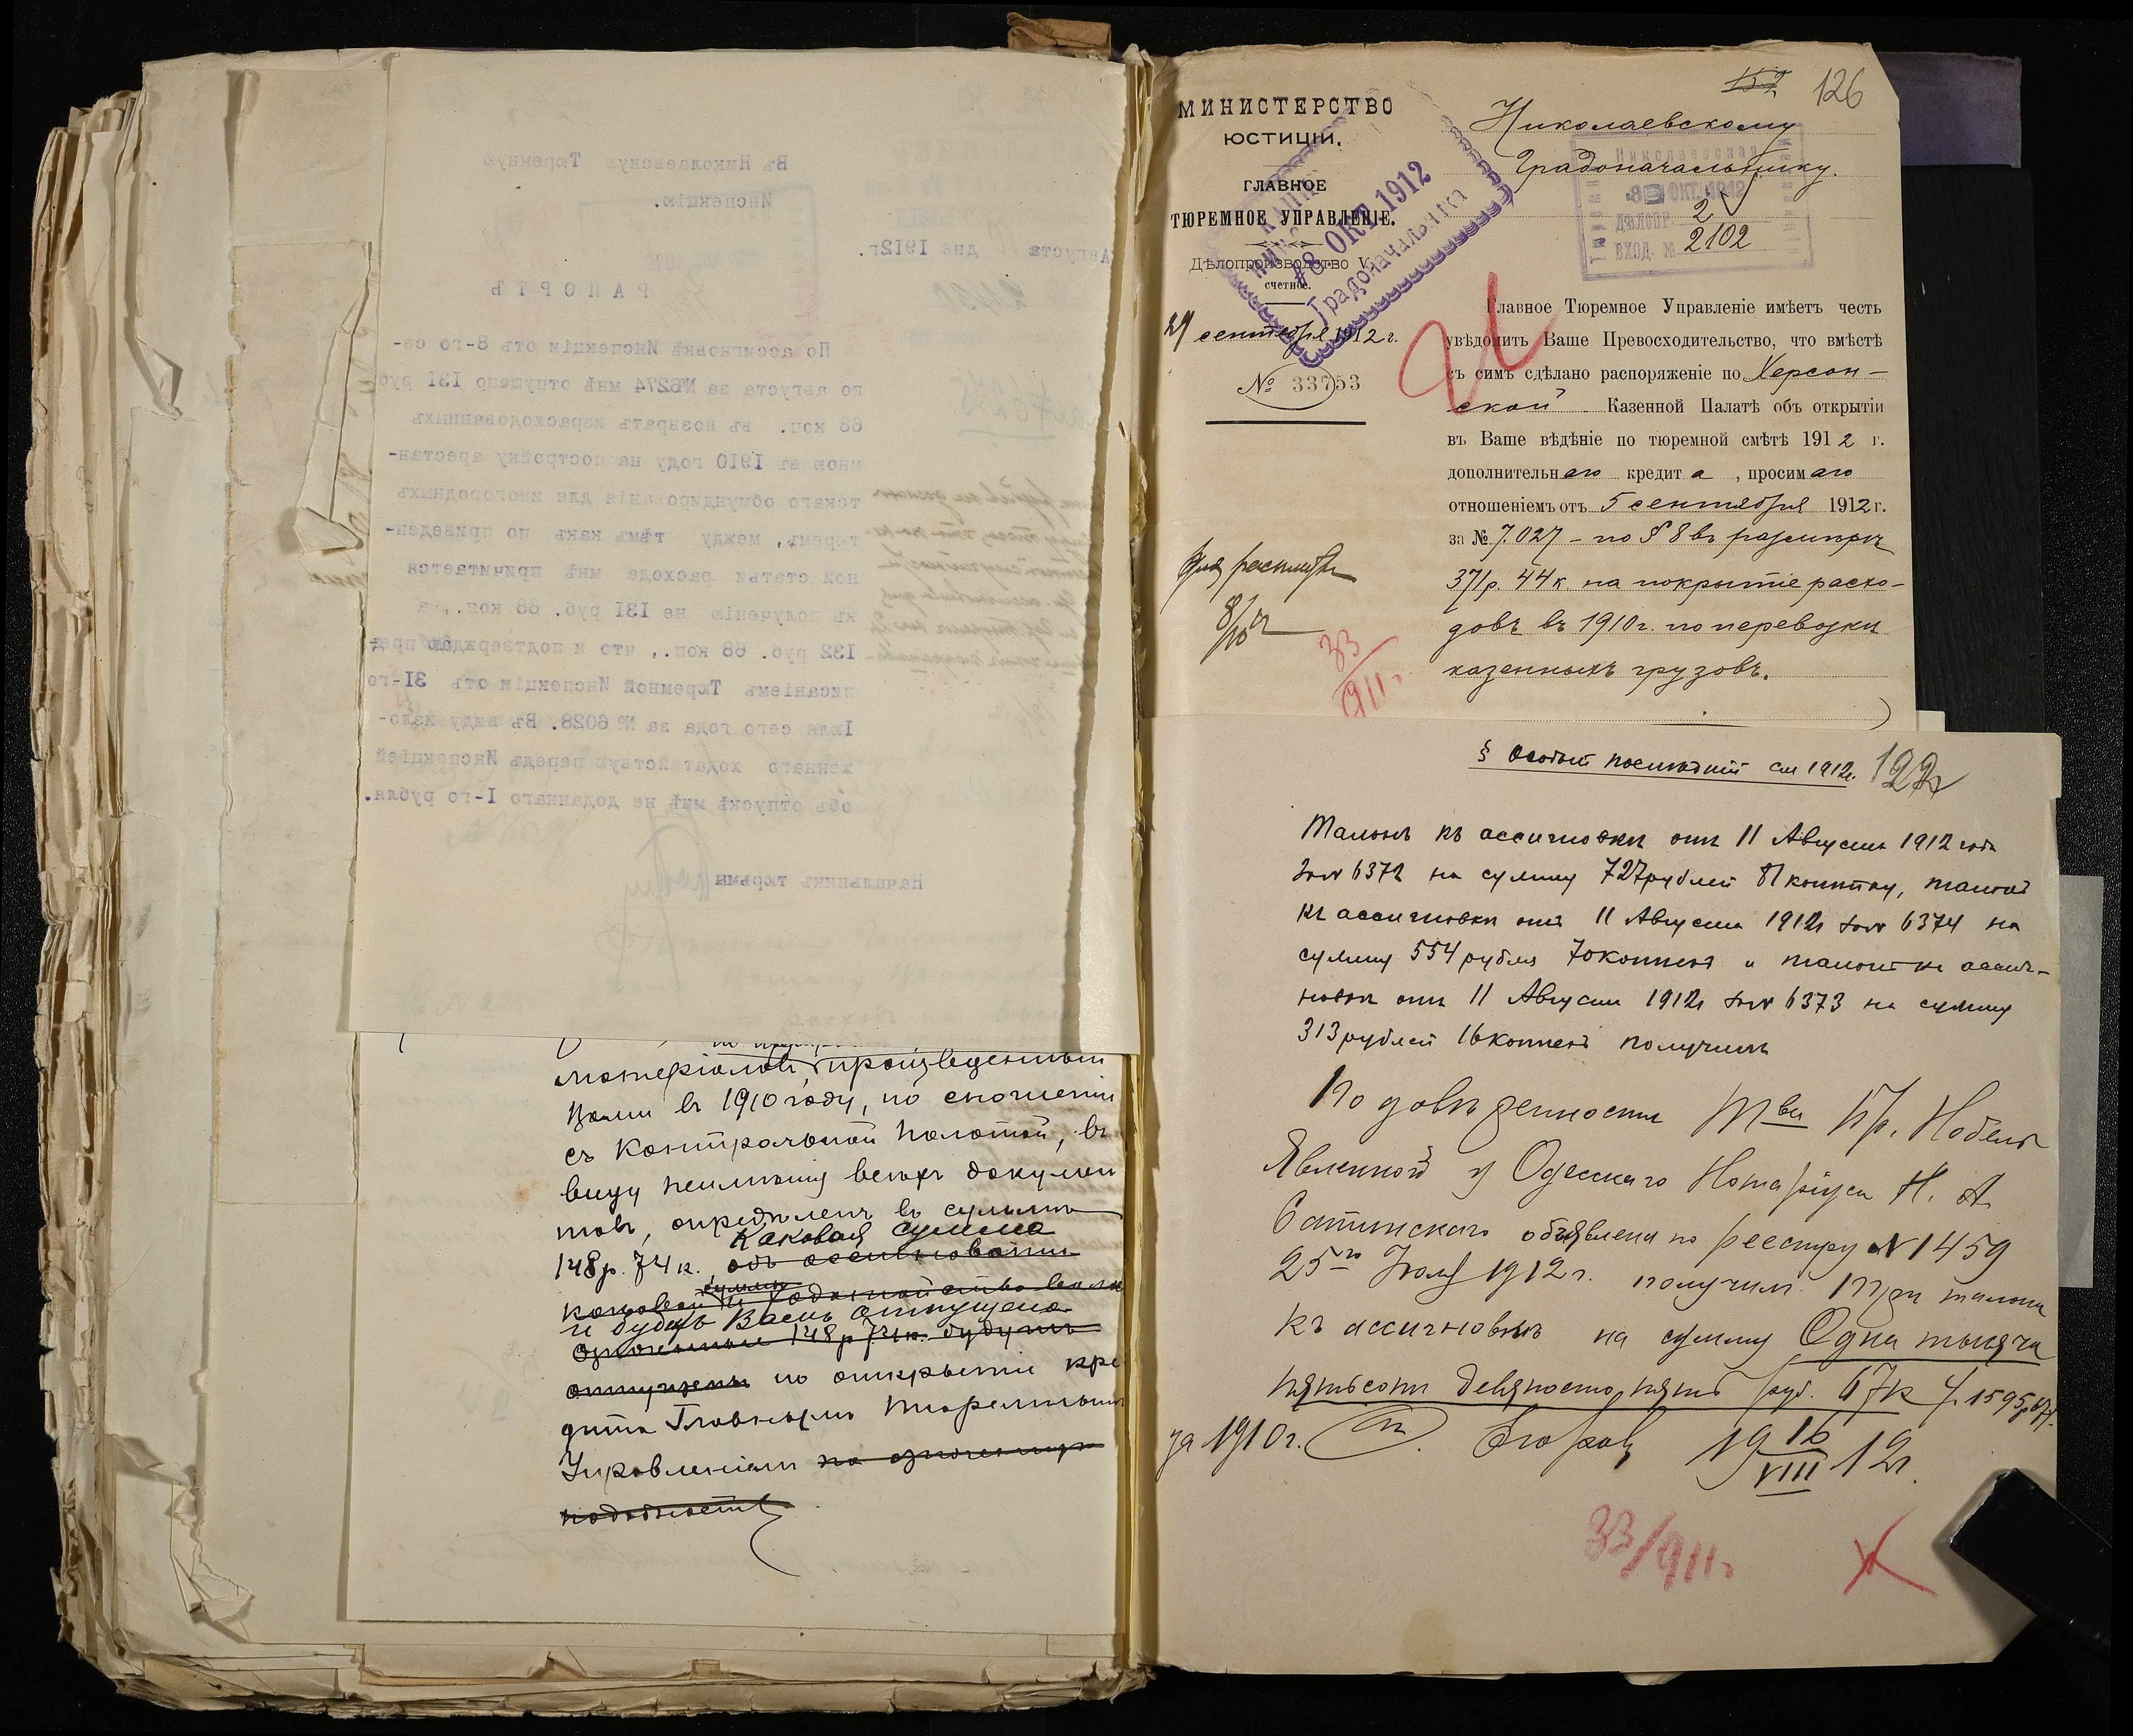 Въ Николаевскую Тюремную
Инспекцію.
Августа дня 1912г.
РАПОРТЪ
По ассигновкѣ Инспекціи отъ 8-го се-
го августа за №6274 мнѣ отпущено 131 руб
68 коп. въ возвратъ израсходованныхъ
мною въ 1910 году на постройку арестан-
тскаго обмундированія для иногородныхъ
тюремъ, между тѣмъ какъ по приведен-
ной статьи расхода мнѣ причитается
къ полученію не 131 руб. 68 коп., а
132 руб. 68 коп., что и подтверждаю пред-
писаніемъ Тюремной Инспекціи отъ 31-го
Іюля сего года за № 6028. Въ виду изло-
женнаго ходатайствую передъ Инспекціей
объ отпускѣ мнѣ не доданнаго 1-го рубля.
Начальникъ тюрьмы
матеріаловъ, произведенный
Вами въ 1910 году, по сношеніи
съ Контрольной Палатой, въ
виду неимѣнія всѣхъ докумен
товъ, опредѣленъ въ суммѣ
каковая сумма
148р. 74к. объ ассигнованіи
суммы
каковой и ходатайство
и будетъ Вамъ отпущена
означенные 148р 74к. будутъ
отпущены по открытіи кре
дита Главнымъ Тюремнымъ
Управленіемъ на означенную
надобность
152 126
МИНИСТЕРСТВО
ЮСТИЦІИ.
ГЛАВНОЕ
ТЮРЕМНОЕ УПРАВЛЕНІЕ.
Дѣлопроизводство V,
счетное.
29 сентября 1912 г.
№ 33753
8 ОКТ 1912
Градоначальника
Николаевскому
Градоначальнику.
Николаевская
8 ОКТ. 1912
ДѢЛОПР. 2
ВХОД. № 2102
Главное Тюремное Управленіе имѣетъ честь
увѣдомить Ваше Превосходительство, что вмѣстѣ
съ симъ сдѣлано распоряженіе по Херсон-
ской Казенной Палатѣ объ открытіи
въ Ваше вѣдѣніе по тюремной смѣтѣ 1912 г.
дополнительнаго кредита, просимаго
отношеніемъ отъ 5 сентября 1912 г.
за № 7.027 - по § 8 въ размѣрѣ
371р. 44к. на покрытіе расхо-
довъ въ 1910г. по перевозкѣ
казенныхъ грузовъ.
8/10
33/911г.
§ Особый послѣдній см 1912г. 127
Талонъ къ ассигновкѣ отъ 11 Августа 1912 года
за № 6372 на сумму 727 рублей 81 копѣйку, талонъ
къ ассигновкѣ отъ 11 Августа 1912г за № 6374 на
сумму 554 рубля 70 копѣекъ и талонъ къ ассиг-
новкѣ отъ 11 Августа 1912г за № 6373 на сумму
313 рублей 16 копѣекъ получилъ
По довѣренности Т-ва Бр. Нобель
явленной у Одесскаго Нотаріуса Н. А.
объявлена по реестру № 1459
25го Іюля 1912г. получилъ три талона
къ ассигновкѣ на сумму Одна тысяча
пятьсотъ девяносто пять руб. 67к р. 1595р 67к.
за 1910г. 19 16/VIII 12г.
33/911г